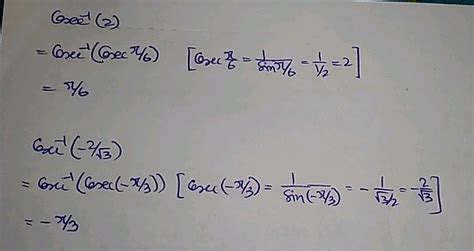 Cosec⁻¹(2)
= Cosec⁻¹(Cosec π/6) [Cosec π/6 = 1/sin π/6 = 1/1/2 = 2]
= π/6
Cosec⁻¹(-2/√3)
= Cosec⁻¹(Cosec(-π/3)) [Cosec(-π/3) = 1/sin(-π/3) = -1/√3/2 = -2/√3]
= -π/3